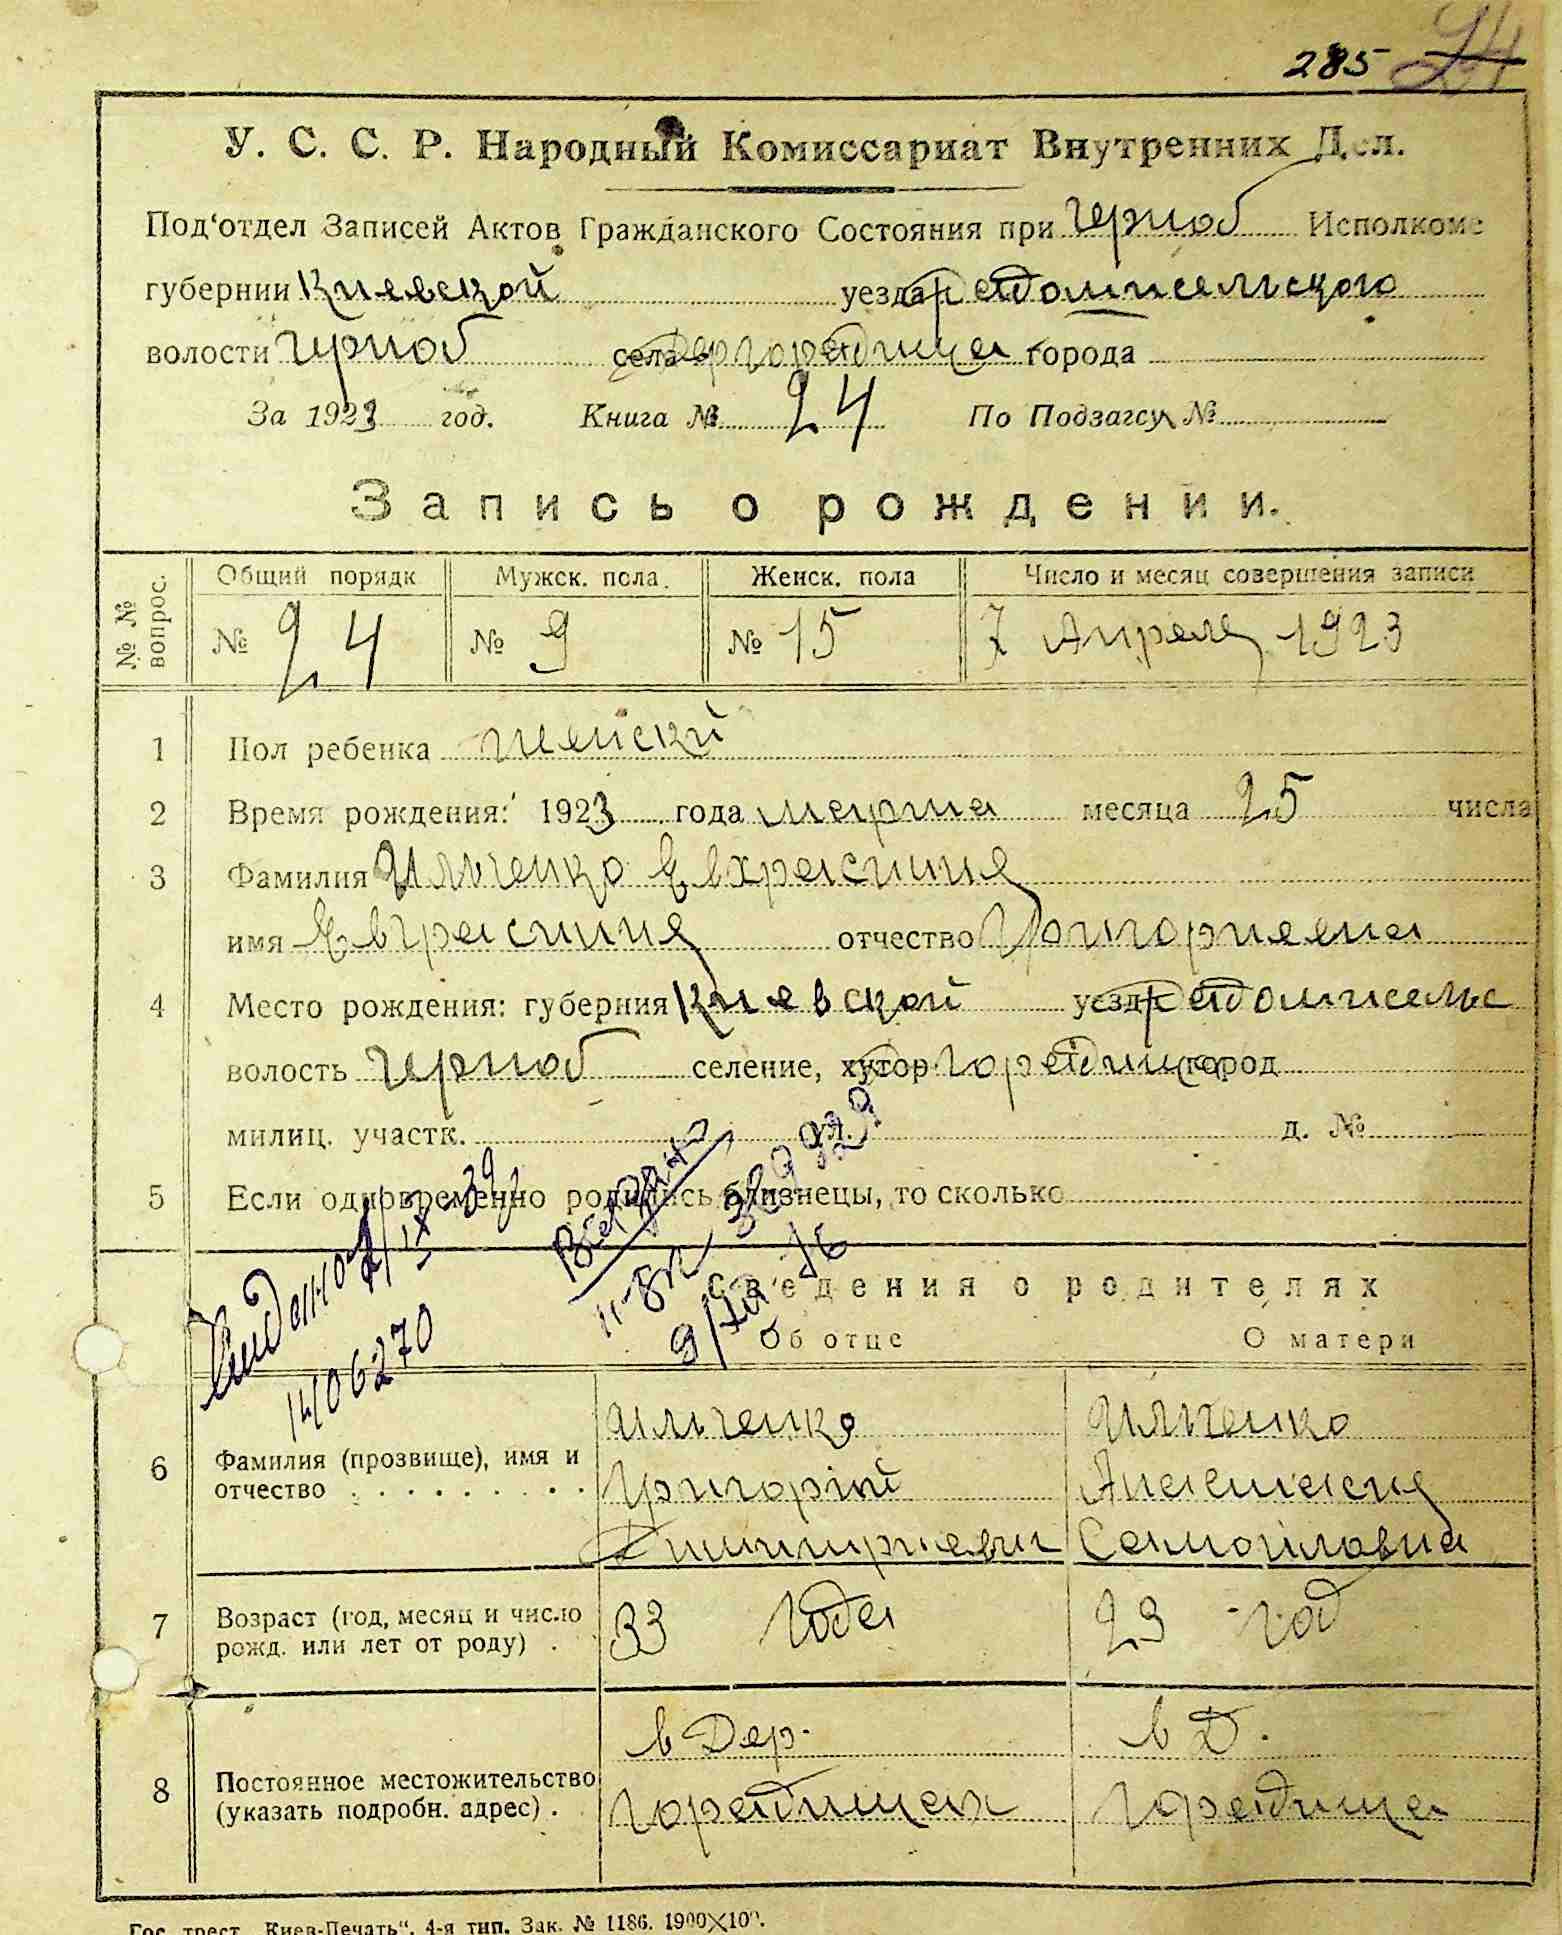 285 24
У. С. С. Р. Народный Комиссариат Внутренних Дел.
Под'отдел Записей Актов Гражданского Состояния при Черноб Исполкоме
губернии Киевской уезда Радомисельского
волости Черноб села Дер Горадища города
За 1923 год. Книга № 24 По Подзагсу №
Запись о рождении.
№ № вопрос. Общий порядк Мужск. пола. Женск. пола Число и месяц совершения записи
№ 24 № 9 № 15 7 Апреля 1923
1 Пол ребенка женский
2 Время рождения: 1923 года марта месяца 25 числа
3 Фамилия Ильченко Евхрасиния
имя Евграсиния отчество Григориевна
4 Место рождения: губерния Киевской уезд Радомисельс
волость Черноб селение, хутор Д. Горадища город
милиц. участк. ул. д. №
5 Если одновременно родились близнецы, то сколько
2/IX 39
1406270
9/XII
Сведения о родителях
Об отце О матери
6 Фамилия (прозвище), имя и отчество . . . . . . . . . .
Ильченко Ильченко
Григорій Анастасия
Димитриевич Самойловна
7 Возраст (год, месяц и число рожд. или лет от роду) . 33 года 23 год
8 Постоянное местожительство (указать подробн. адрес) .
в Дер. в Д.
Горадищах Горадища
Гос. трест „Киев-Печать“. 4-я тип. Зак. № 1186. 1900×100.